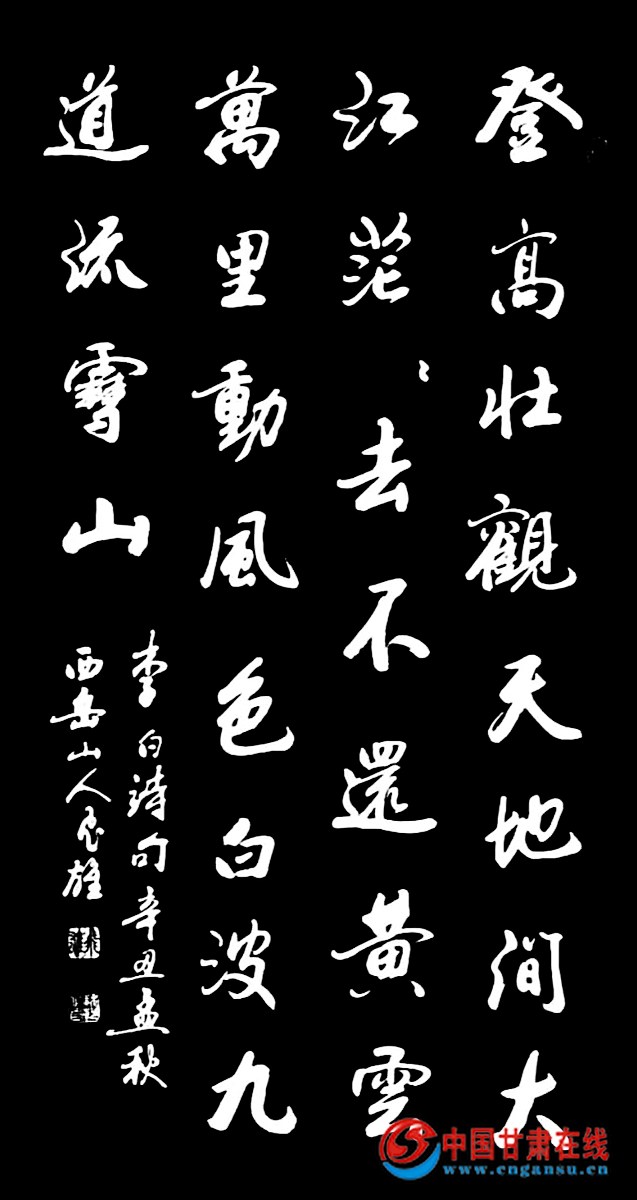 登高壯觀天地间大
江茫〻去不還黄雲
萬里動風色白波九
道流雪山
李白詩句辛丑孟秋
西岳山人良雄
中国甘肃在线
www.cngansu.cn